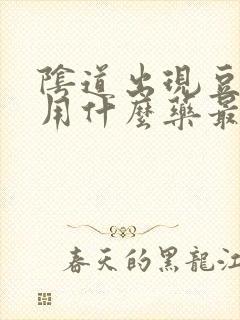 陰道出現豆
用什麼藥最
春天的黑龍江